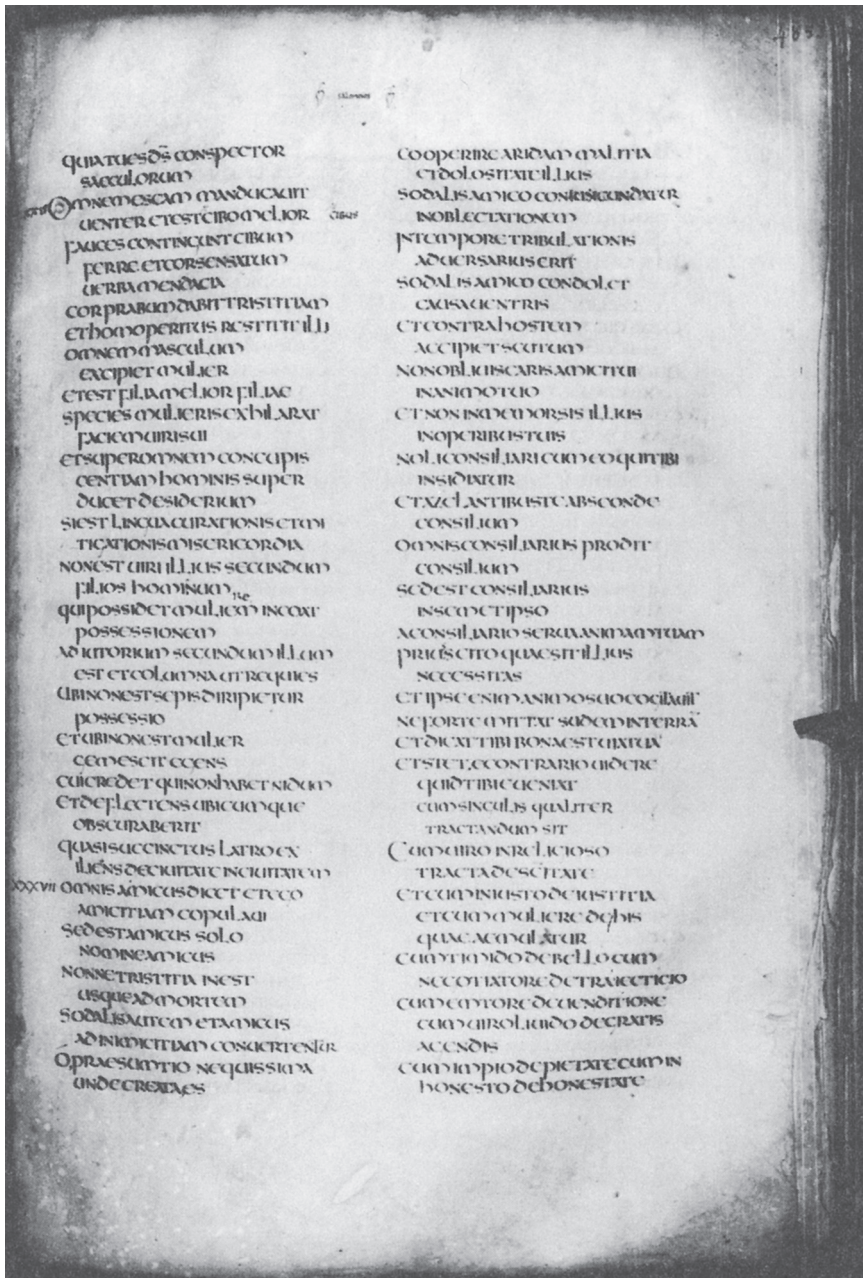 QUIA TU ES DS CONSPECTOR
SAECULORUM
OMNEM ESCAM MANDUCAUIT
UENTER ET EST CIBO MELIOR CIBUS
FAUCES CONTINGUNT CIBUM
FERRE ET COR SENSATUM
UERBA MENDACIA
COR PRABUM DABIT TRISTITIAM
ET HOMO PERITUS RESTITIT ILLI
OMNEM MASCULUM
EXCIPIET MULIER
ET EST FILIA MELIOR FILIAE
SPECIES MULIERIS EXHILARAT
FACIEM UIRI SUI
ET SUPER OMNEM CONCUPIS
CENTIAM HOMINIS SUPER
DUCET DESIDERIUM
SI EST LINGUA CURATIONIS ET MI
TIGATIONIS MISERICORDIA
NON EST UIRI ILLIUS SECUNDUM
FILIOS HOMINUM
QUI POSSIDET MULIEREM INCOAT
POSSESSIONEM
ADIUTORIUM SECUNDUM ILLUM
EST ET COLUMNA UT REQUIES
UBI NON EST SEPIS DIRIPIETUR
POSSESSIO
ET UBI NON EST MULIER
GEMESCIT EGENS
CUI CREDET QUI NON HABET NIDUM
ET DEFLECTENS UBICUMQUE
OBSCURABERIT
QUASI SUCCINCTUS LATRO EX
ILIENS DE CIUITATE IN CIUITATEM
XXXVII OMNIS AMICUS DICET ET EGO
AMICITIAM COPULAUI
SED EST AMICUS SOLO
NOMINE AMICUS
NONNE TRISTITIA INEST
USQUE AD MORTEM
SODALIS AUTEM ET AMICUS
AD INIMICITIAM CONUERTENTUR
O PRAESUMTIO NEQUISSIMA
UNDE CREATA ES
COOPERIRE ARIDAM MALITIA
ET DOLOSITATE ILLIUS
SODALIS AMICO CONIUCUNDATUR
IN OBLECTATIONEM
IN TEMPORE TRIBULATIONIS
ADUERSARIUS ERIT
SODALIS AMICO CONDOLET
CAUSA UENTRIS
ET CONTRA HOSTEM
ACCIPIET SCUTUM
NON OBLIUISCARIS AMICI TUI
IN ANIMO TUO
ET NON INMEMOR SIS ILLIUS
IN OPERIBUS TUIS
NOLI CONSILIARI CUM EO QUI TIBI
INSIDIATUR
ET A ZELANTIBUS TE ABSCONDE
CONSILIUM
OMNIS CONSILIARIUS PRODIT
CONSILIUM
SED EST CONSILIARIUS
IN SEMETIPSO
A CONSILIARIO SERUA ANIMAM TUAM
PRIUS SCITO QUAE SIT ILLIUS
NECESSITAS
ET IPSE ENIM ANIMO SUO COGITAUIT
NE FORTE MITTAT SUDEM IN TERRA
ET DICAT TIBI BONA EST UIA TUA
ET STET E CONTRARIO UIDERE
QUID TIBI EUENIAT
CUM SINGULIS QUALITER
TRACTANDUM SIT
CUM UIRO INRELIGIOSO
TRACTA DE SCITATE
ET CUM INIUSTO DE IUSTITIA
ET CUM MULIERE DE HIS
QUAE AEMULATUR
CUM TIMIDO DE BELLO CUM
NEGOTIATORE DE TRAIECTICIO
CUM EMTORE DE UENDITIONE
CUM UIRO LIUIDO DE GRATIS
AGENDIS
CUM IMPIO DE PIETATE CUM IN
HONESTO DE HONESTATE